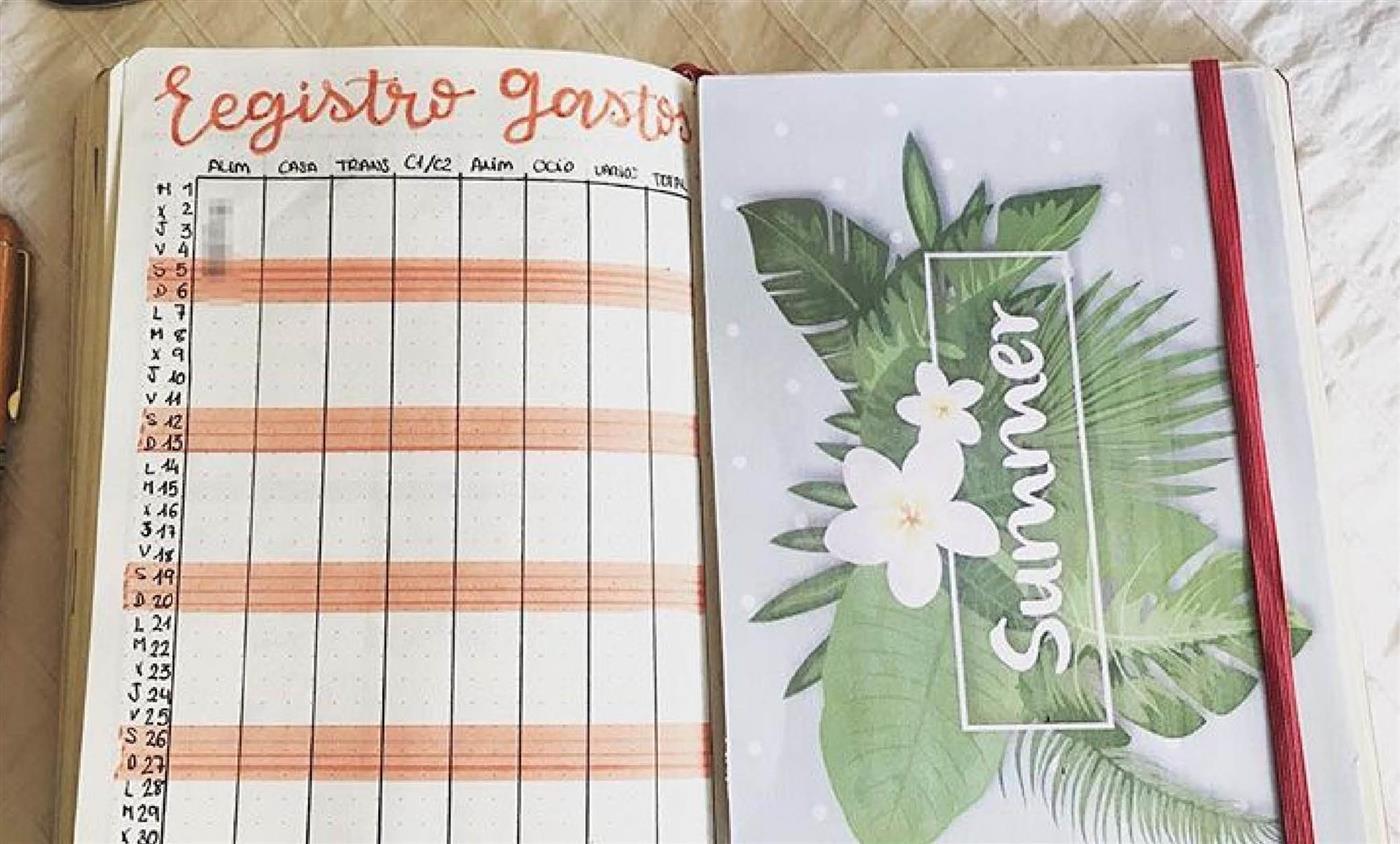 Registro Gastos
ALIM CASA TRANS C1/C2 ALIM OCIO VARIOS TOTAL
M 1
X 2
J 3
V 4
S 5
D 6
L 7
M 8
X 9
J 10
V 11
S 12
D 13
L 14
M 15
X 16
J 17
V 18
S 19
D 20
L 21
M 22
X 23
J 24
V 25
S 26
D 27
L 28
M 29
X 30
Summer